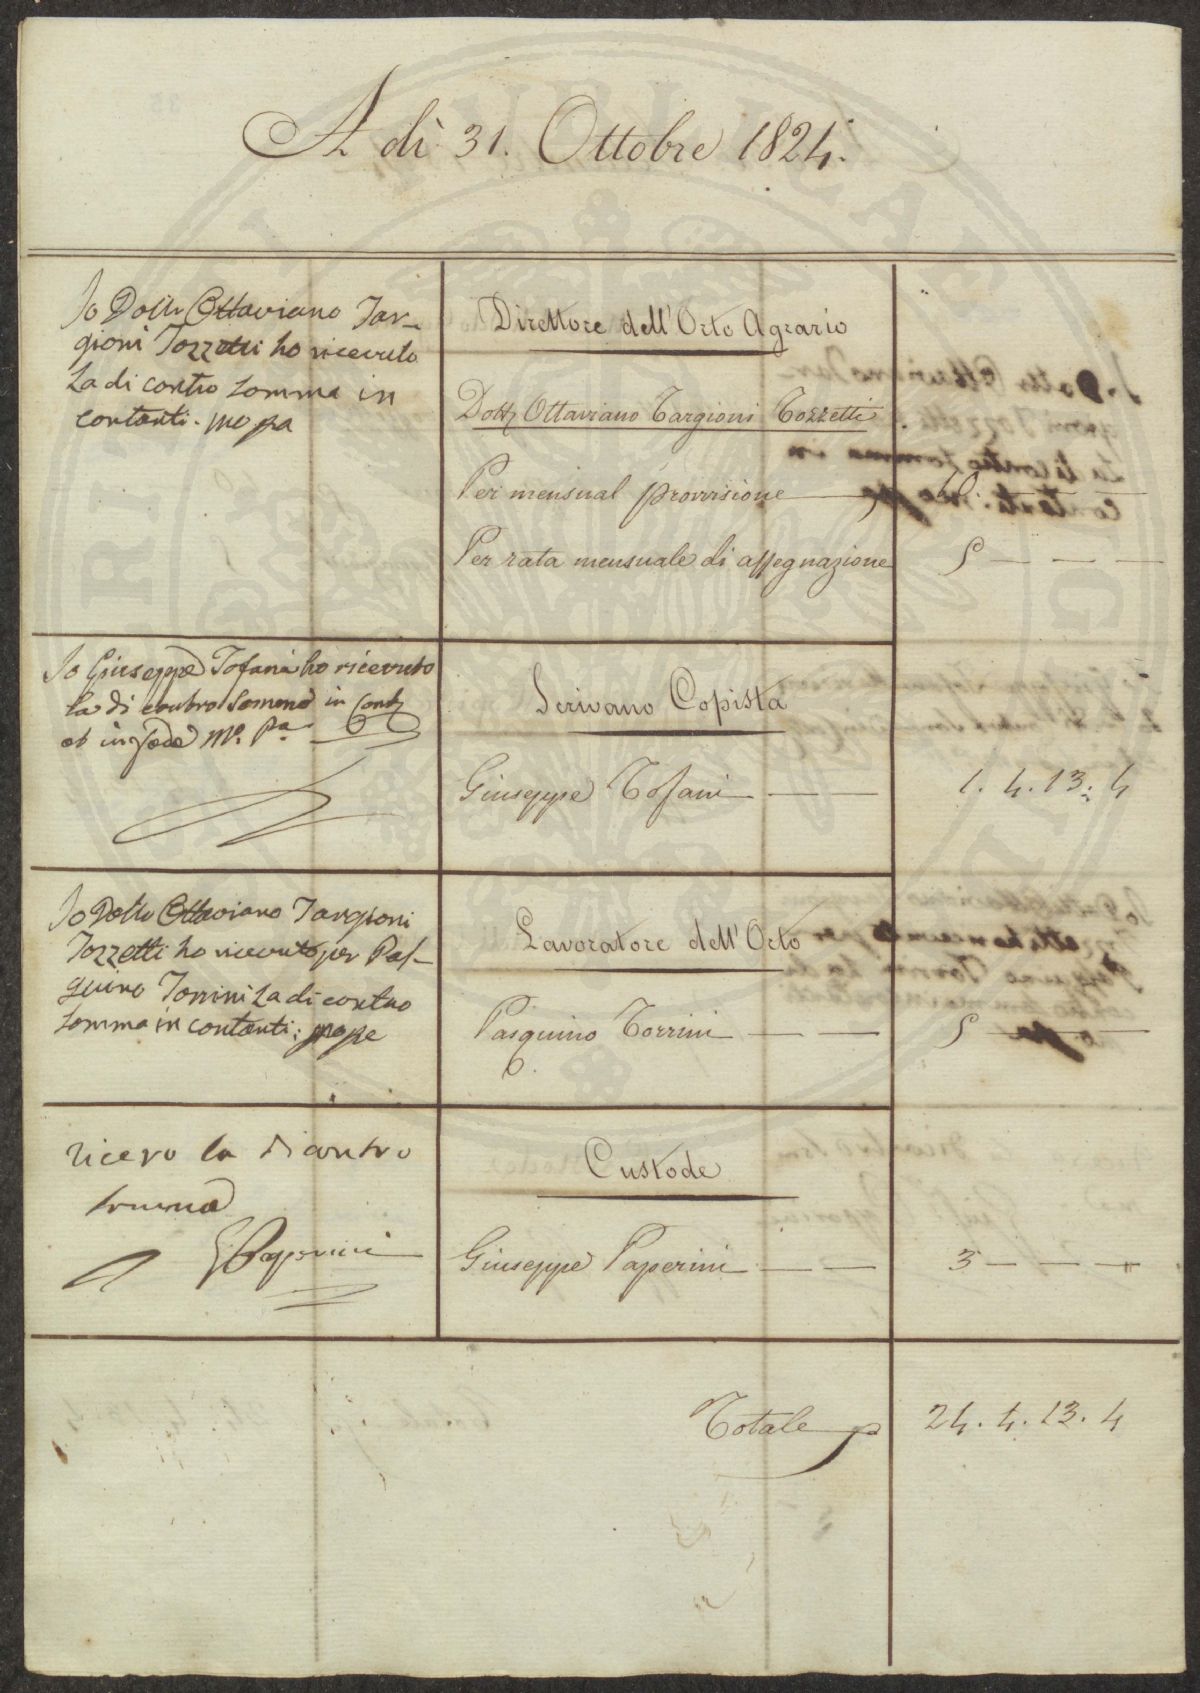 A dì 31. Ottobre 1824.
Io Dott. Ottaviano Tar-
gioni Tozzetti ho ricevuto
la di contro somma in
contanti. mo pa
Direttore dell'Orto Agrario
Dott. Ottaviano Targioni Tozzetti
Per mensual provvisione 10 — — —
Per rata mensuale di assegnazione 5 — — —
Io Giuseppe Tofani ho ricevuto
la di contro somma in Cont.
et in fede Mo. pa
Scrivano Copista
Giuseppe Tofani — — 1. 4. 13. 4
Io Dott. Ottaviano Targioni
Tozzetti ho ricevuto per Pas-
quino Torrini la di contro
somma in contanti: mo pa
Lavoratore dell'Orto
Pasquino Torrini — — 5 — — —
ricevo la di contro
somma
G Paperini
Custode
Giuseppe Paperini — — 3 — — —
Totale 24. 4. 13. 4